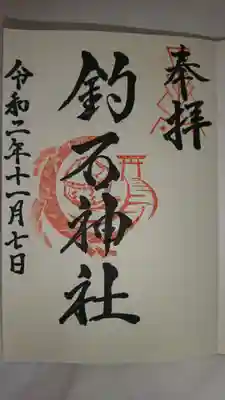 奉拝
釣石神社
令和二年十一月七日